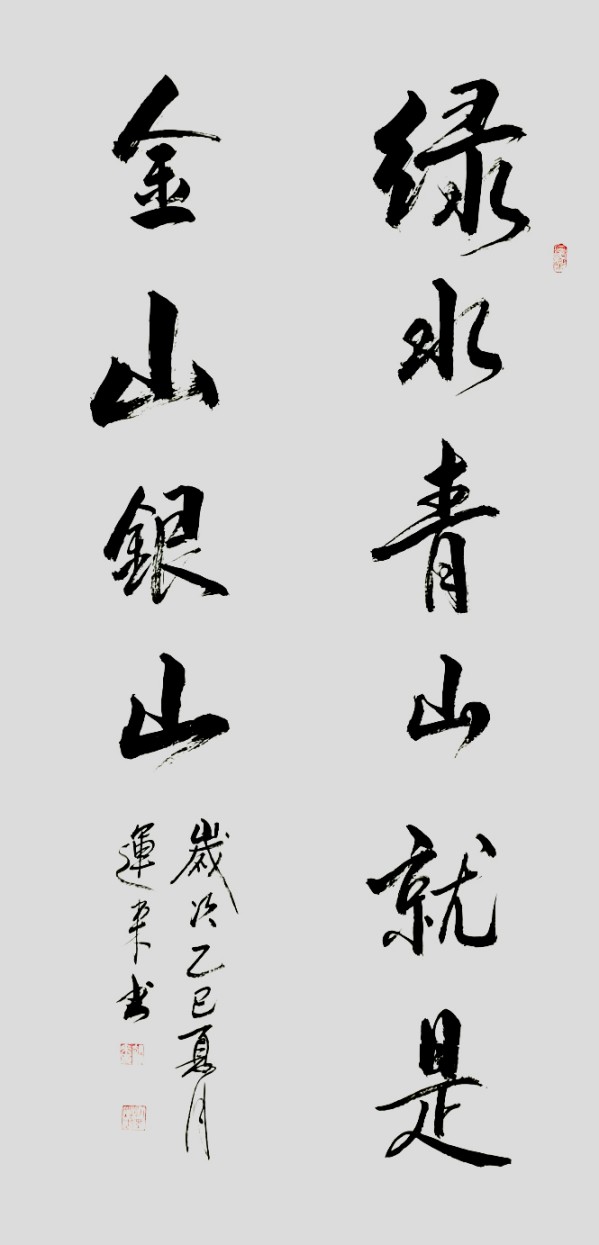 绿水青山就是
金山銀山
歲次乙巳夏月
運来书